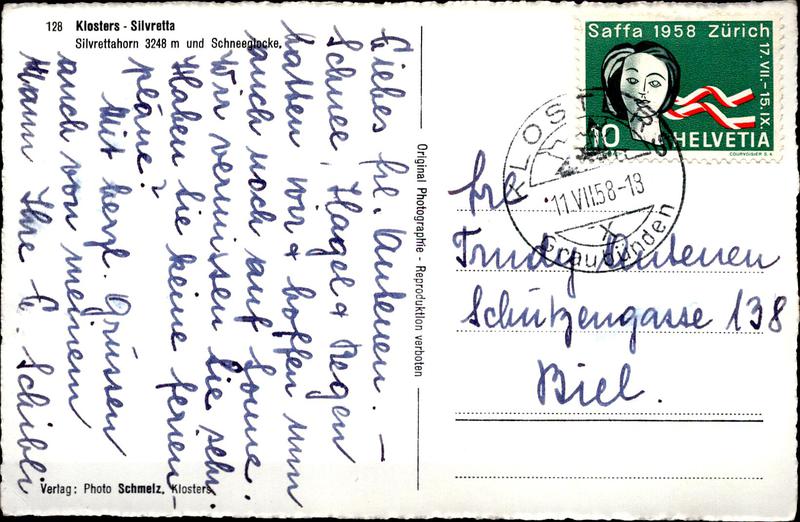 128 Klosters - Silvretta
Silvrettahorn 3248 m und Schneeglocke.
Liebes Frl. Antenen. –
Schnee, Hagel & Regen
hatten wir & hoffen nun
auch noch auf Sonne.
Wir vermissen Sie sehr.
Haben Sie keine Ferien-
pläne?
Mit herzl. Grüssen
auch von meinem
Mann Ihre E. Schibli
Verlag: Photo Schmelz, Klosters.
Original Photographie - Reproduktion verboten
Saffa 1958 Zürich
17.VII.–15.IX.
10 HELVETIA
COURVOISIER S.A.
KLOSTERS
11.VII.58-18
X
Graubünden
Frl.
Trudy Antenen
Schützengasse 138
Biel.